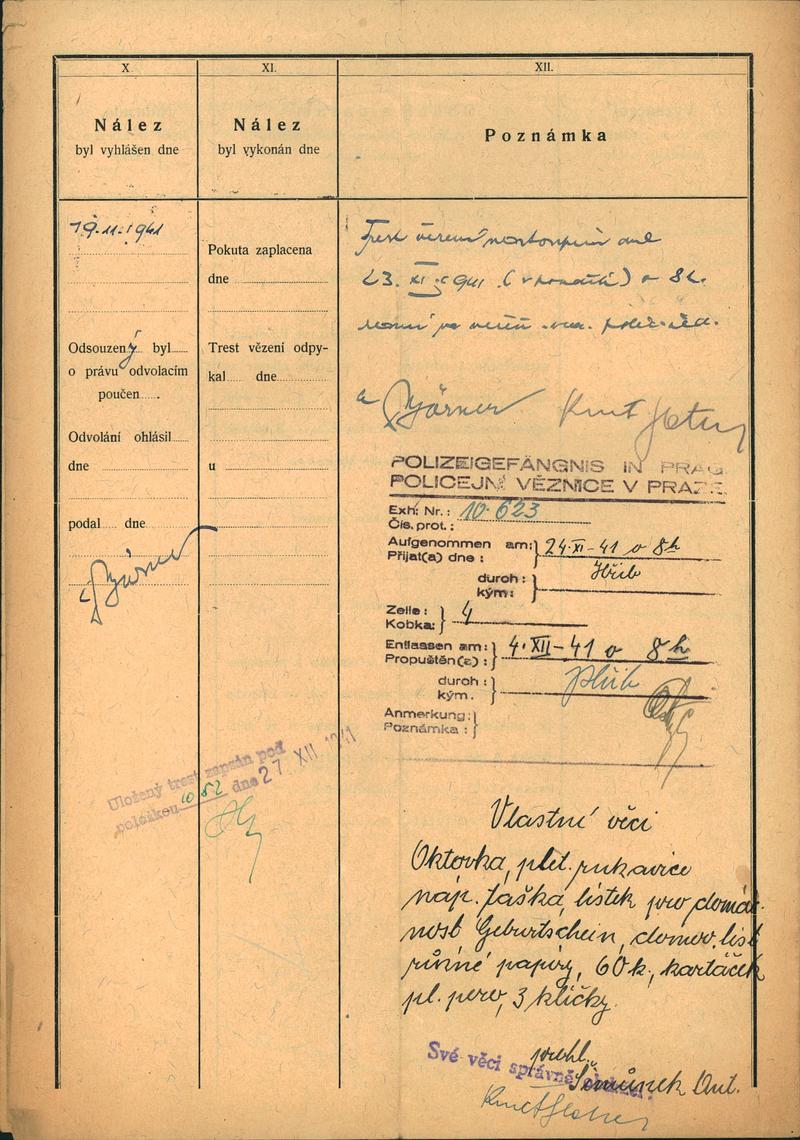 X.
XI.
XII.
Nález
byl vyhlášen dne
Nález
byl vykonán dne
Poznámka
19.11.1941
Odsouzený byl
o právu odvolacím
poučen
Odvolání ohlásil
dne
podal dne
Pokuta zaplacena
dne
Trest vězení odpy-
kal dne
u
Trest vězení nastoupím dne
23. XI. 1941 (v pondělí) o 8 h.
Börner Kurt
POLIZEIGEFÄNGNIS IN PRAG
POLICEJNÍ VĚZNICE V PRAZE
Exh. Nr.: 10.623
Čís. prot.:
Aufgenommen am: 24-XI-41 o 8h
Přijat(a) dne:
durch:
kým:
Zelle: 4
Kobka:
Entlassen am: 4.XII-41 o 8h
Propuštěn(a):
durch:
kým.
Anmerkung:
Poznámka:
Uložený trest zapsán pod
položkou 1052 dne 27 XII 1941
Vlastní věci
Oktovka, plet. rukavice
náp. taška, lístek pro domác-
nost Geburtschein, domov. list
různé papíry, 60 k, kartáček
pl. pero, 3 klíčky.
Své věci správně
Šimůnek Ant.
Kurt